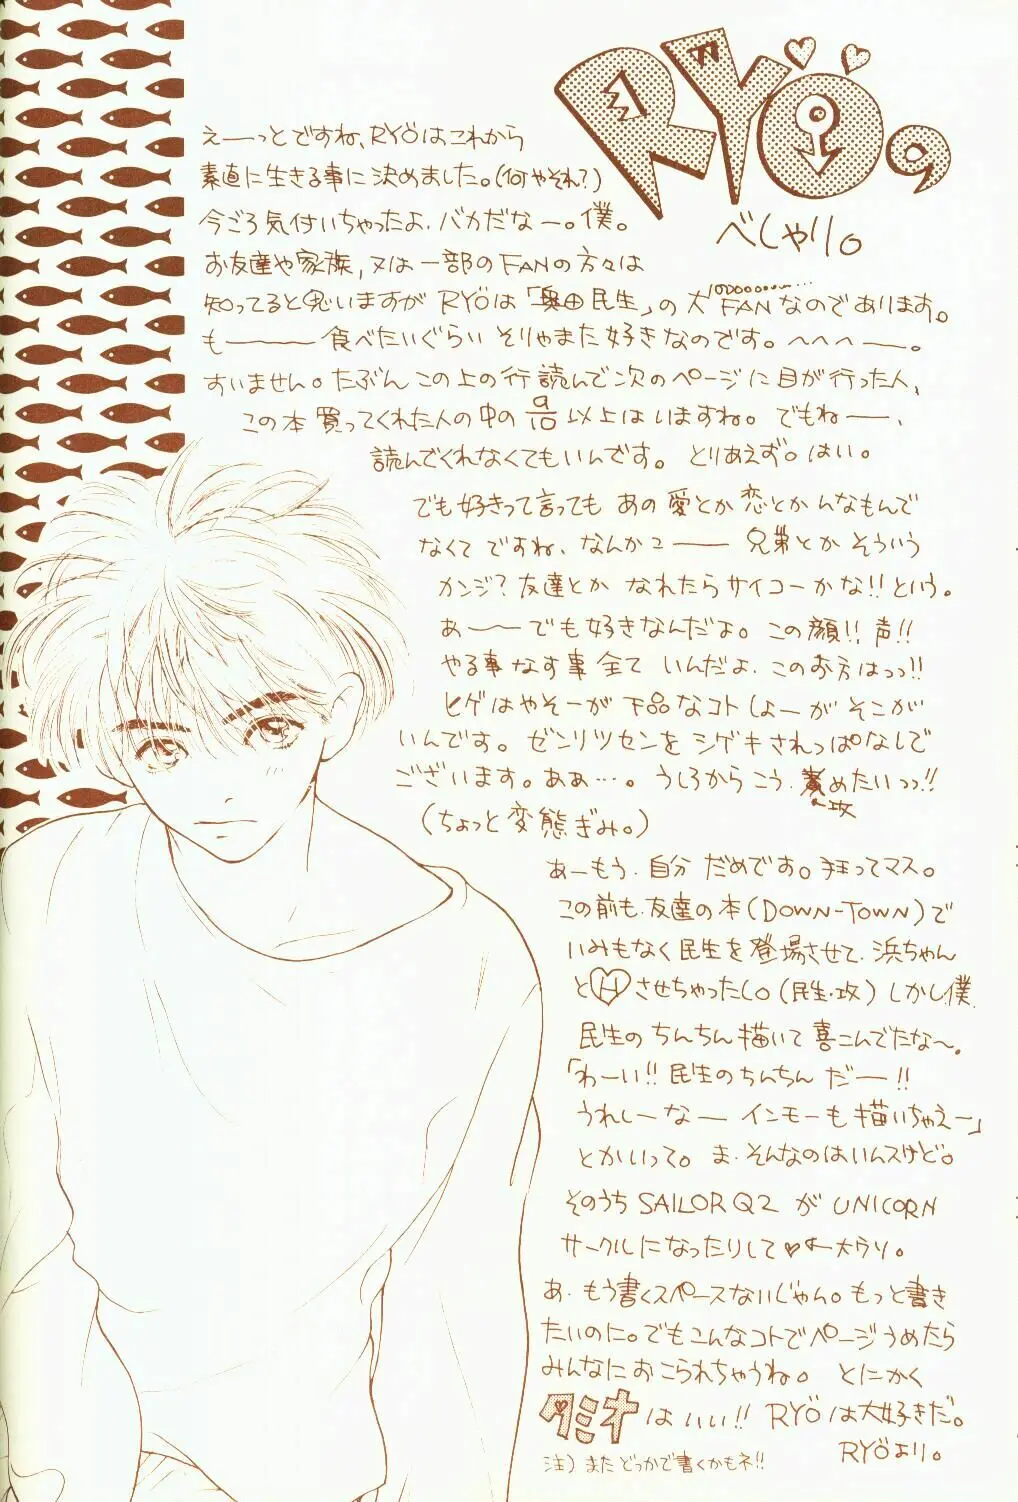 RYÖの
べしゃり。
えーっとですね、RYÖはこれから
素直に生きる事に決めました。(何やそれ?)
今ごろ気付いちゃったよ、バカだなー。僕。
お友達や家族,又は一部のFANの方々は
知ってると思いますがRYÖは「奥田民生」の大FANなのであります。
も―――食べたいぐらいそりゃまた好きなのです。へへへ―。
すいません。たぶんこの上の行読んで次のページに目が行った人、
この本買ってくれた人の中の9/10以上はいますね。でもねー、
読んでくれなくてもいんです。とりあえず。はい。
でも好きって言ってもあの愛とか恋とかんなもんで
なくてですね、なんかこ――兄弟とかそういう
カンジ?友達とかなれたらサイコーかな!!という。
あ――でも好きなんだよ。この顔!!声!!
やる事なす事全ていんだよ.このお方はっっ!!
ヒゲはやそーが下品なコトしよーがそこが
いんです。ゼンリツセンをシゲキされっぱなしで
ございます。ああ…。うしろからこう、責めたいっっ!!
攻
(ちょっと変態ぎみ。)
あーもう、自分だめです。狂ってマス。
この前も友達の本(DOWN-TOWN)で
いみもなく民生を登場させて、浜ちゃん
とHさせちゃったし。(民生・攻)しかし、僕
民生のちんちん描いて喜こんでたな〜。
「わーい!!民生のちんちんだー!!
うれしーなーインモーも描いちゃえー」
とかいって。ま、そんなのはいんスけど。
そのうちSAILOR Q2がUNICORN
サークルになったりして♥←大ウソ。
あ、もう書くスペースないじゃん。もっと書き
たいのに。でもこんなコトでページうめたら
みんなにおこられちゃうね。とにかく
タミオはいい!!RYÖは大好きだ。
RYÖより。
注)またどっかで書くかもネ!!